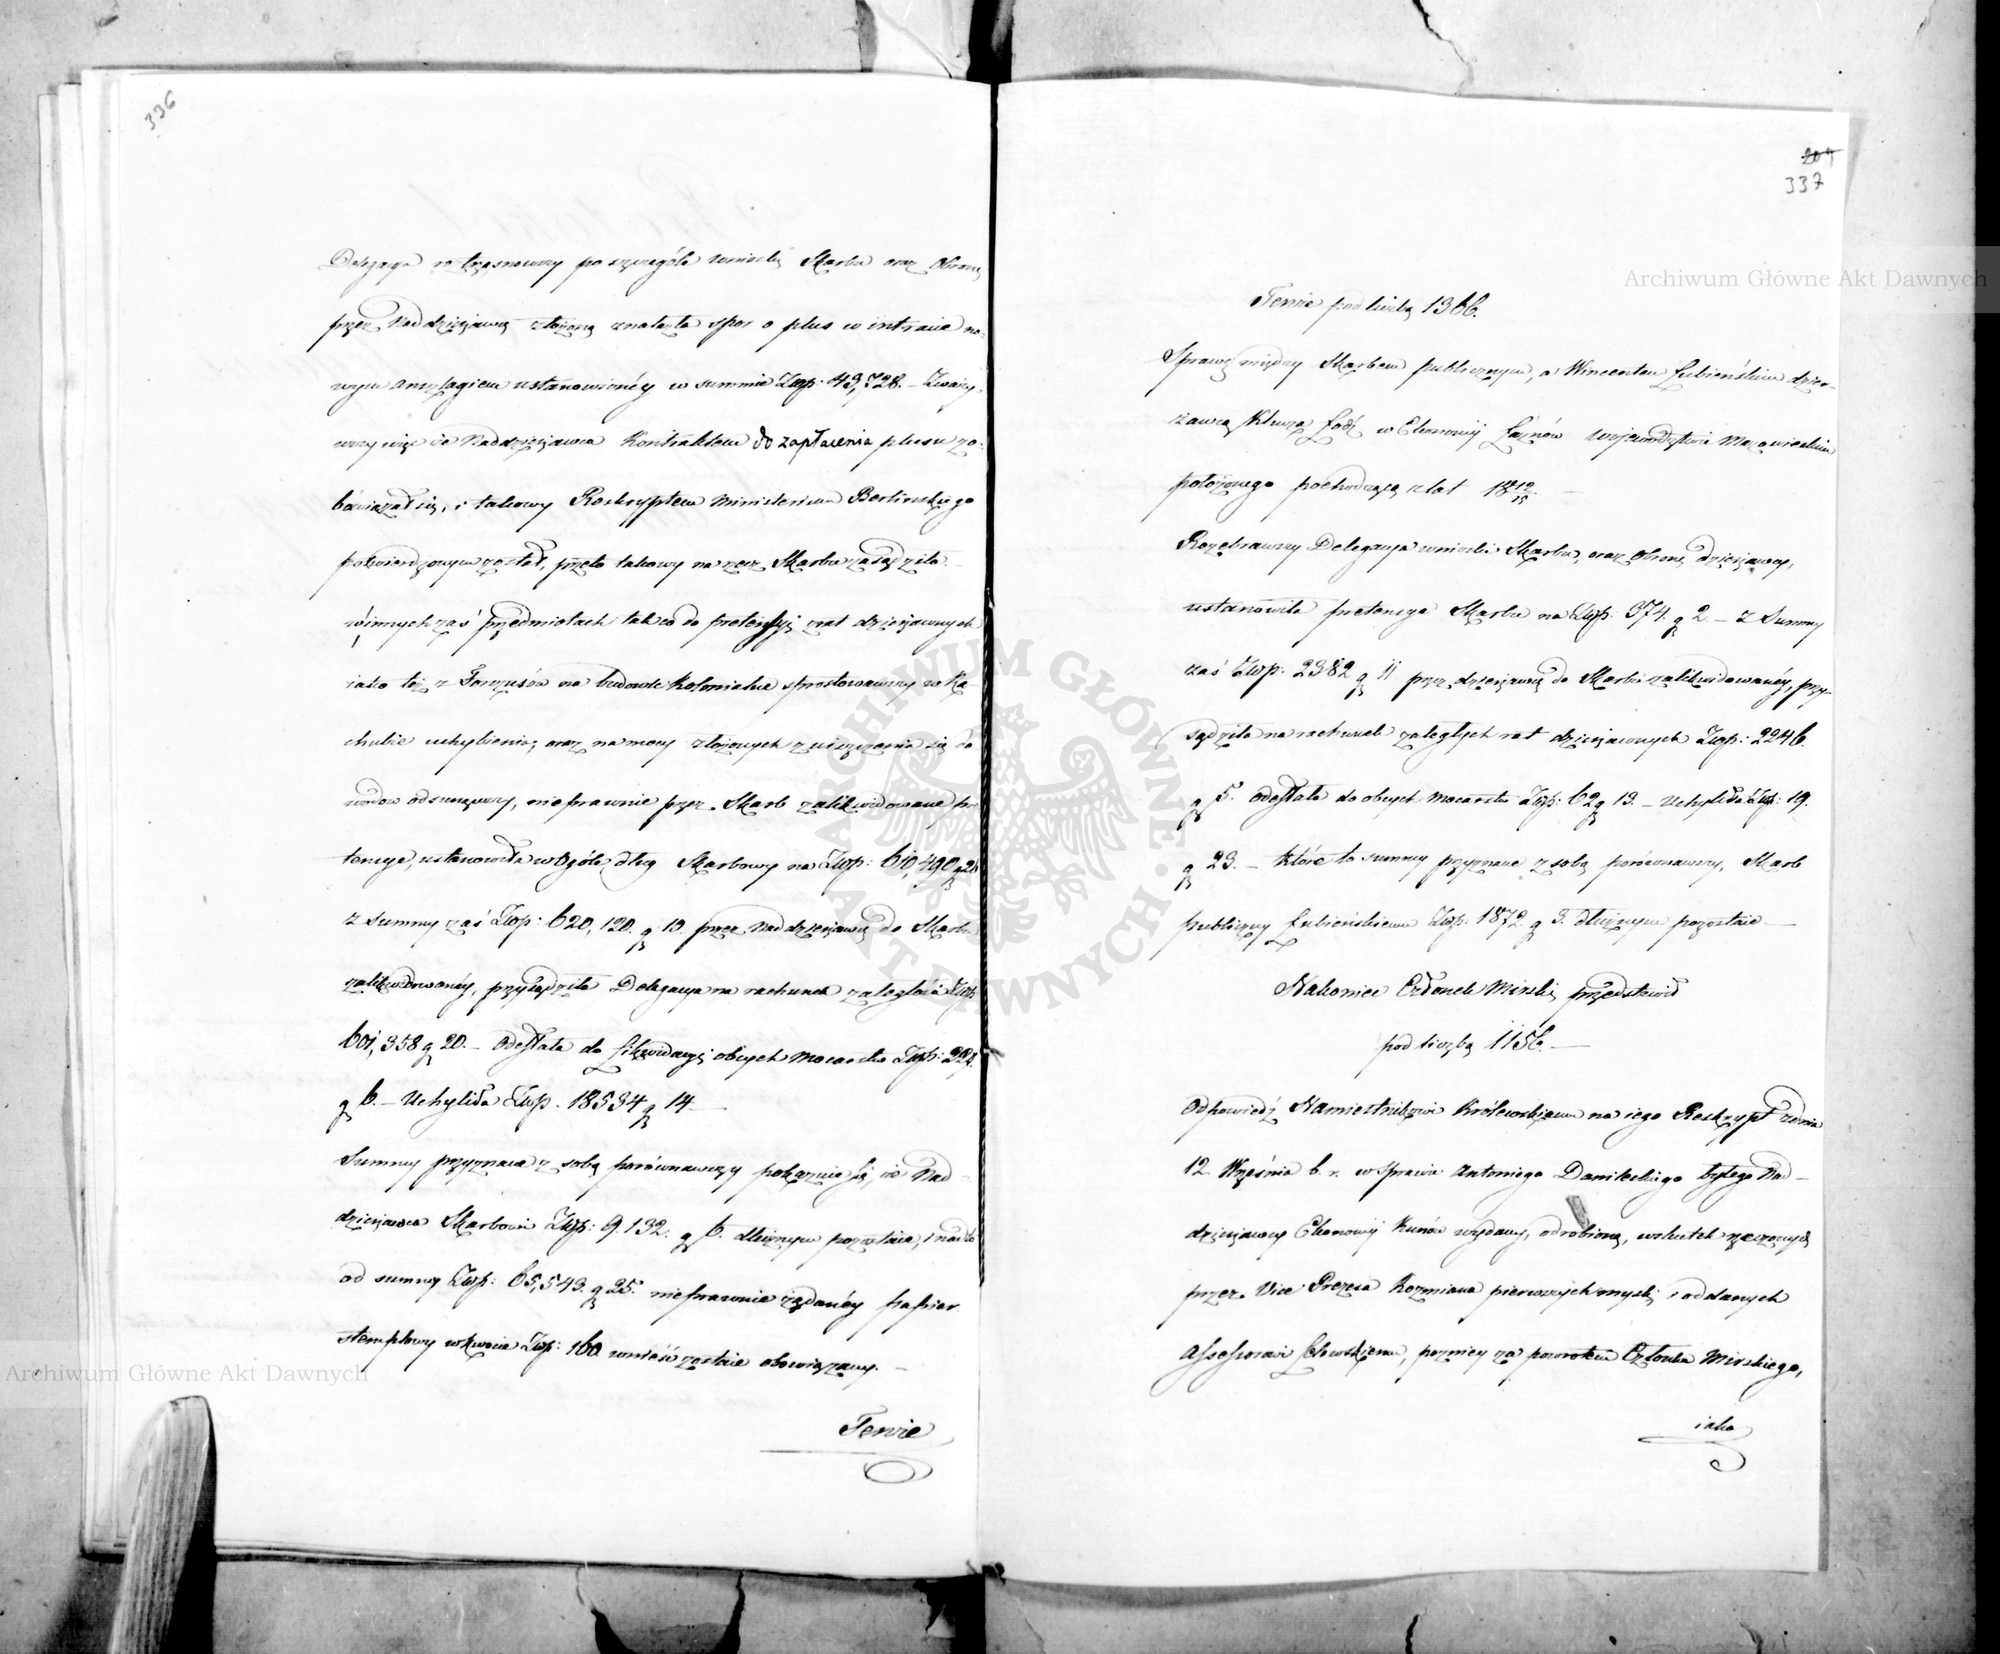 336
Delegacya roztrząsnąwszy po szczególe wnioski Skarbu oraz obronę
przez Naddzierżawcę złożoną znalazła spór o plus w intracie no-
wym anszlagiem ustanowionéy w summie Złp: 43,728. – Zważy-
wszy więc że Naddzierżawca Kontraktem do zapłacenia plusu zo-
bowiązał się, i takowy Reskryptem Ministerium Berlińskiego
potwierdzonym został, przeto takowy na rzecz Skarbu zasądziła. –
w innych zaś przedmiotach tak co do pretensyi z rat dzierżawnych
iako też z Forszusów na budowle kolonialne sprostowawszy w Ra-
chubie uchybienia; oraz na mocy złożonych z uiszczenia się do
wodów odsunąwszy, nieprawnie przez Skarb zalikwidowane pre
tensye, ustanowiła w ogóle dług Skarbowy na Złp: 610,490 g 26
z summy zaś Złp: 620,120. g 10. przez Naddzierżawcę do Skarbu
zalikwidowanéy, przysądziła Delegacya na rachunek zaległości Złp
601,358 g 20. – Odesłała do Likwidacyi obcych Mocarstw Złp: 227.
g 6. – Uchyliła Złp. 18534 g 14 –
Summy przyznane z sobą porównawszy pokazuie się, że Nad-
dzierżawca Skarbowi Złp: 9132. g 6. dłużnym pozostaie, i nadto
od summy Złp: 65,543. g 25. nieprawnie żądanéy papier
stemplowy w kwocie Złp: 160 wnieść zostaie obowiązany. –
Tenże
204
337
Tenże pod liczbą 1366.
Sprawę między Skarbem publicznym, a Wincentem Łubieńskim dzier-
żawcą Klucza Łódź w Ekonomij Łaznów Województwie Mazowieckim
położonego pochodzącą z lat 18 12/15. –
Rozebrawszy Delegacya wnioski Skarbu, oraz obronę dzierżawcy,
ustanowiła pretensye Skarbu na Złp: 374. g 2. – z Summy
zaś Złp: 2382 g 11 przez dzierżawcę do Skarbu zalikwidowanéy, przy-
sądziła na rachunek zaległych rat dzierżawnych Złp: 2246.
g 5. Odesłała do obcych Mocarstw Złp: 62 g 13. – Uchyliła Złp: 19.
g 23. – które to summy przyznane z sobą porównawszy, Skarb
publiczny Łubieńskiemu Złp: 1872. g 3. dłużnym pozostaie –
Nakoniec Członek Mirski przedstawił
pod liczbą 1156. –
Odpowiedź Namiestnikowi Królewskiemu na iego Reskrypt z dnia
12 Września b. r. w sprawie Antoniego Danileckiego byłego Nad-
dzierżawcy Ekonomij Kunów wydany, odrobioną, w skutek rzeczonych
przez Vice Prezesa Kozmiana pierwszych myśli i oddanych
Assessorowi Celewskiemu, pozniey za powrotem Członka Mirskiego,
iako
Archiwum Główne Akt Dawnych
Archiwum Główne Akt Dawnych
ARCHIWUM GŁÓWNE AKT DAWNYCH